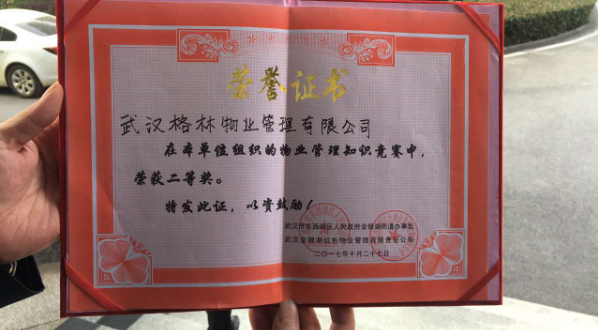 荣誉证书
武汉格林物业管理有限公司
在本单位组织的物业管理知识竞赛中，
荣获二等奖。
特发此证，以资鼓励！
武汉市东西湖区人民政府金银湖街道办事处
武汉金银湖红色物业管理有限责任公司
二〇一七年十月二十七日